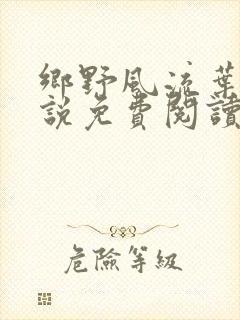 鄉野風流葉
說免費閱讀
危險等級